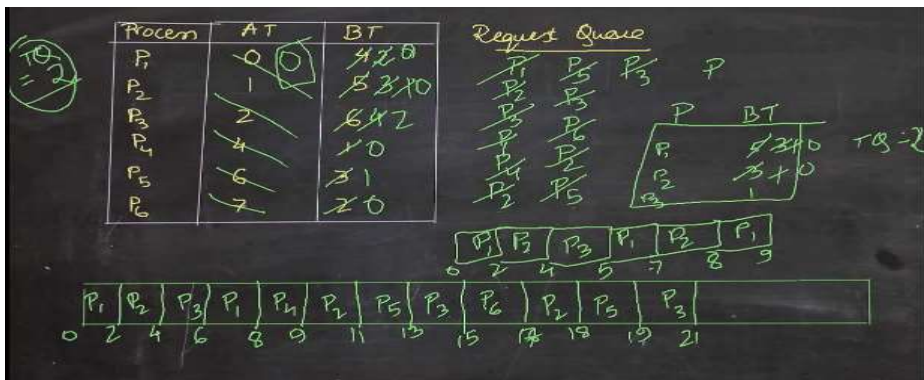 Process AT BT
P1 0 0 4 2 0
P2 1 5 3 1 0
P3 2 6 4 2
P4 4 1 0
P5 6 3 1
P6 7 2 0
TQ = 2
Request Queue
P1 P5 P3 P
P2 P3
P3 P6
P1 P2
P4 P5
P2
P BT
P1 5 3 1 0
P2 3 1 0
P3 1
TQ = 2
P1 P2 P3 P1 P2 P1
0 2 4 5 7 8 9
P1 P2 P3 P1 P4 P2 P5 P3 P6 P2 P5 P3
0 2 4 6 8 9 11 13 15 17 18 19 21